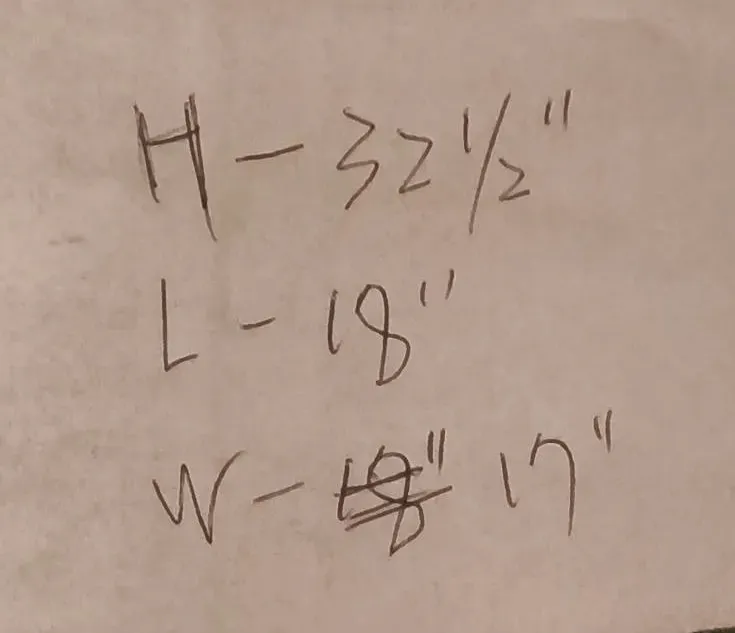 H - 32 1/2"
L - 18"
W - 18" 17"